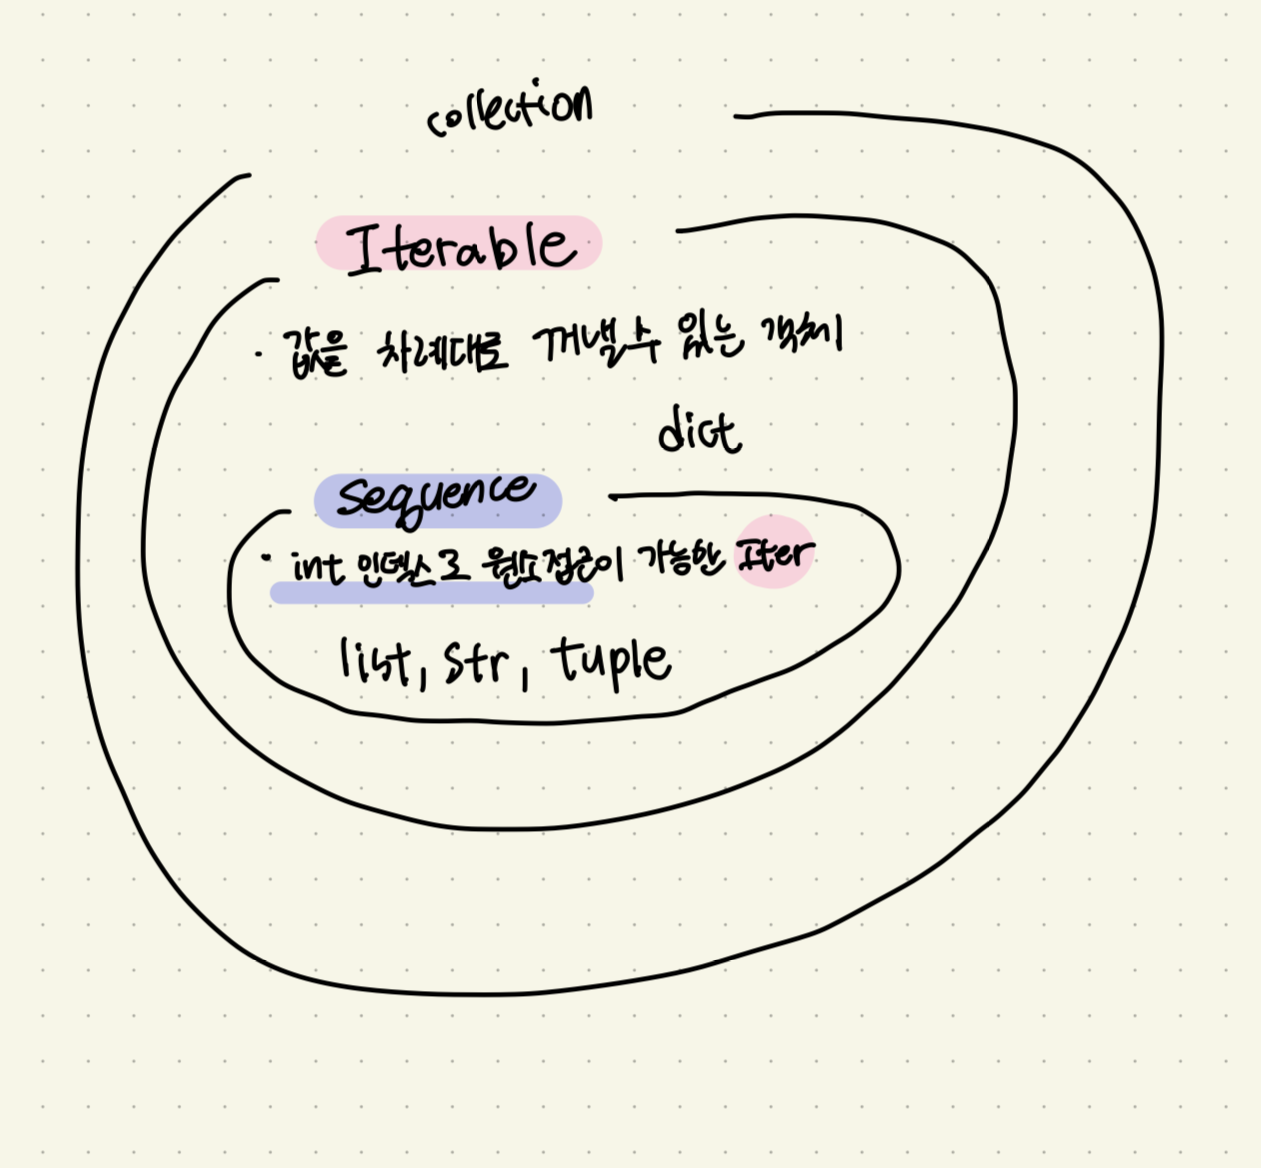 collection
Iterable
· 값을 차례대로 꺼낼 수 있는 객체
dict
sequence
· int 인덱스로 원소접근이 가능한 Iter
list, str, tuple